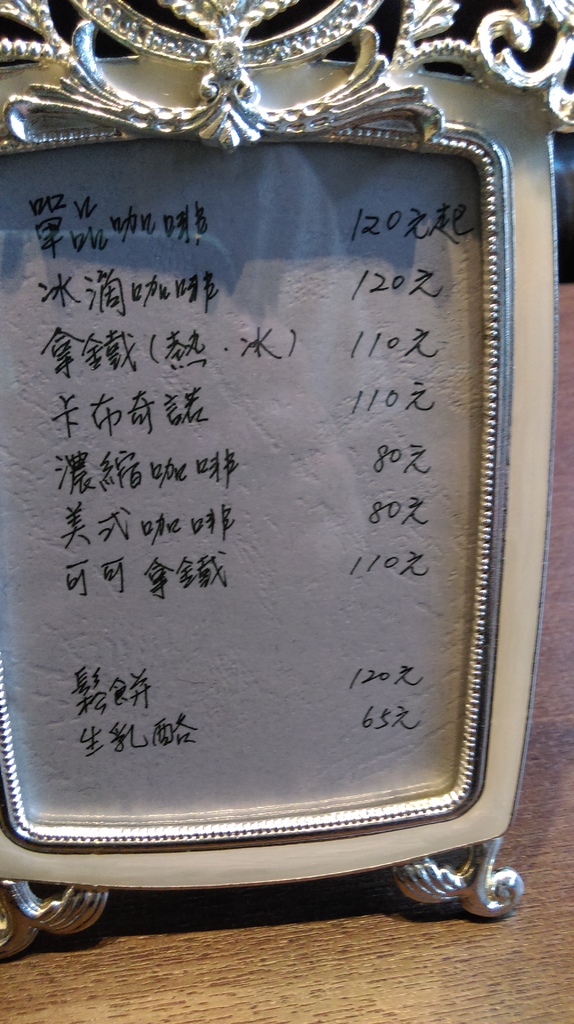 單品咖啡 120元起
冰滴咖啡 120元
拿鐵(熱.冰) 110元
卡布奇諾 110元
濃縮咖啡 80元
美式咖啡 80元
可可拿鐵 110元
鬆餅 120元
生乳酪 65元